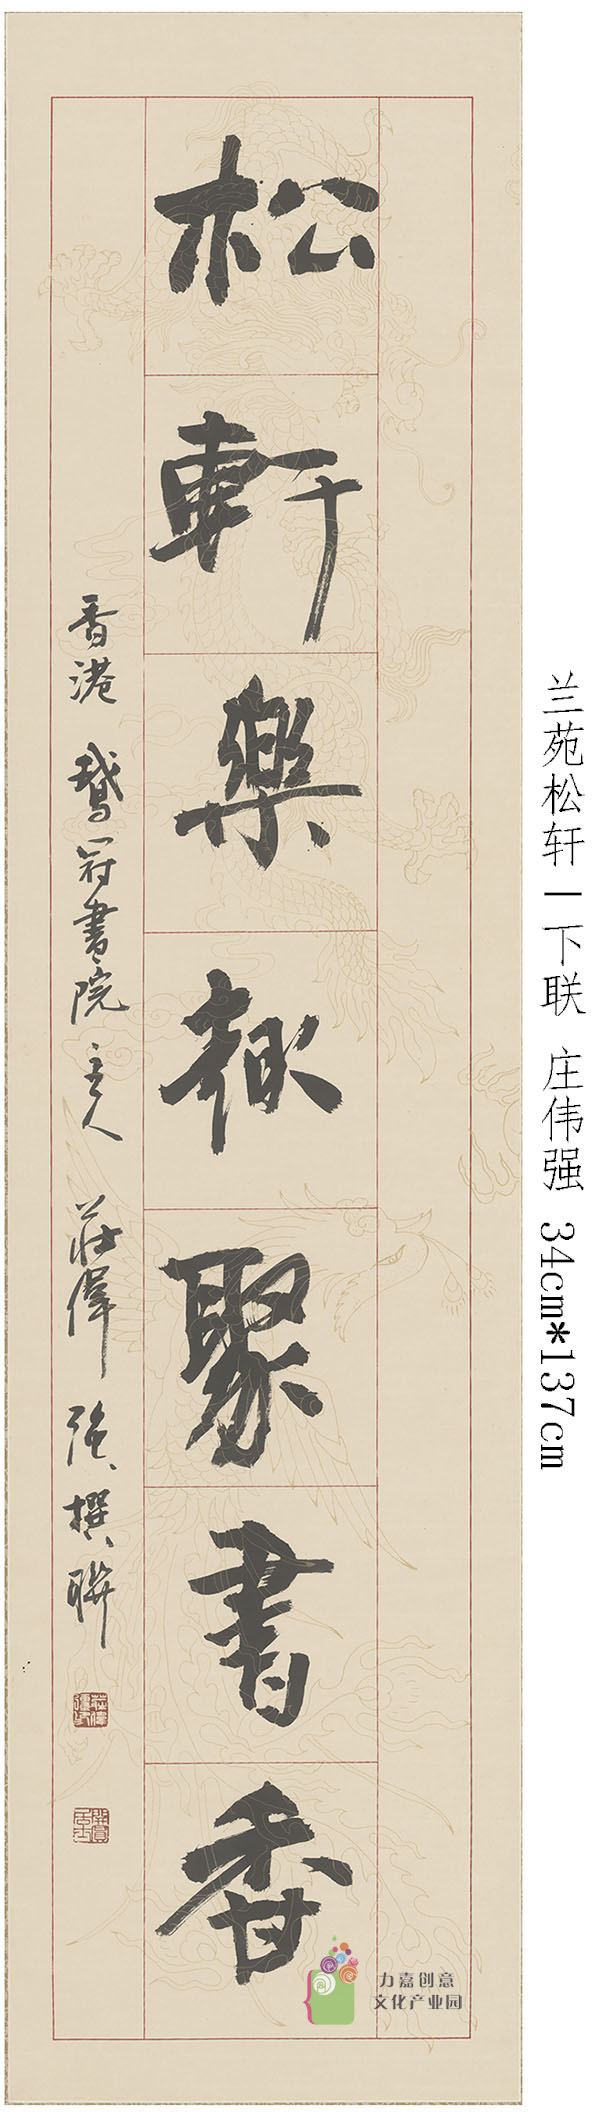 松軒樂趣聚書香
香港 鵝冠書院主人 莊偉強撰聯
兰苑松轩—下联 庄伟强 34cm*137cm
力嘉创意
文化产业园